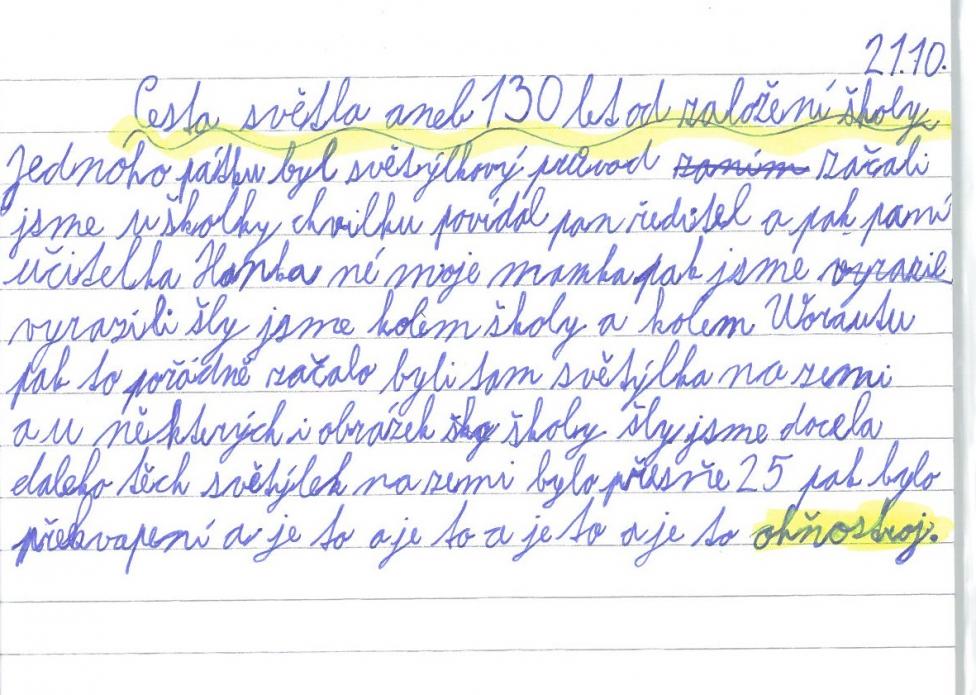 21.10.
Cesta světla aneb 130 let od založení školy
Jednoho pátku byl světýlkový průvod zanim začali
jsme u školky chvilku povídal pan ředitel a pak paní
učitelka Hanka né moje mamka pak jsme vyrazil
vyrazili šly jsme kolem školy a kolem Worautu
pak to pořádně začalo byli tam světýlka na zemi
a u některých i obrázek ško školy šly jsme docela
daleko těch světýlek na zemi bylo přesně 25 pak bylo
překvapení a je to a je to a je to a je to ohňostroj.